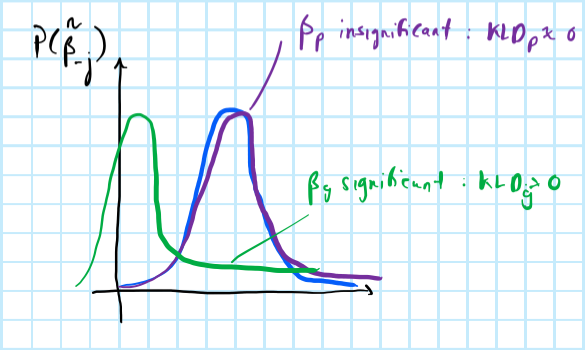 P(β̃₋ⱼ)
βₚ insignificant : KLDₚ ≈ 0
β_g significant : KLD_g > 0